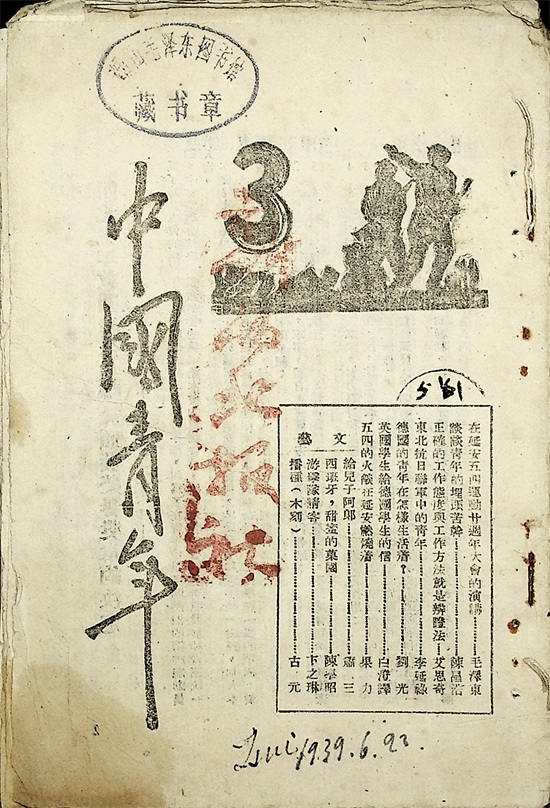 韶山毛泽东图书馆
藏书章
3
中國青年
5 1/61
在延安五四運動廿週年大會的演講……毛澤東
談談青年的埋頭苦幹……陳昌浩
正確的工作態度與工作方法就是辯證法……艾思奇
東北抗日聯軍中的青年……李延祿
德國的青年在怎樣生活着？……劉光
英國學生給德國學生的信……白澄譯
五四的火燄在延安燃燒着……果力
文藝
給兒子阿郎……蕭三
西班牙，甜蜜的菓園……陳學昭
游擊隊請客……卞之琳
播種（木刻）……古元
1939.6.23.